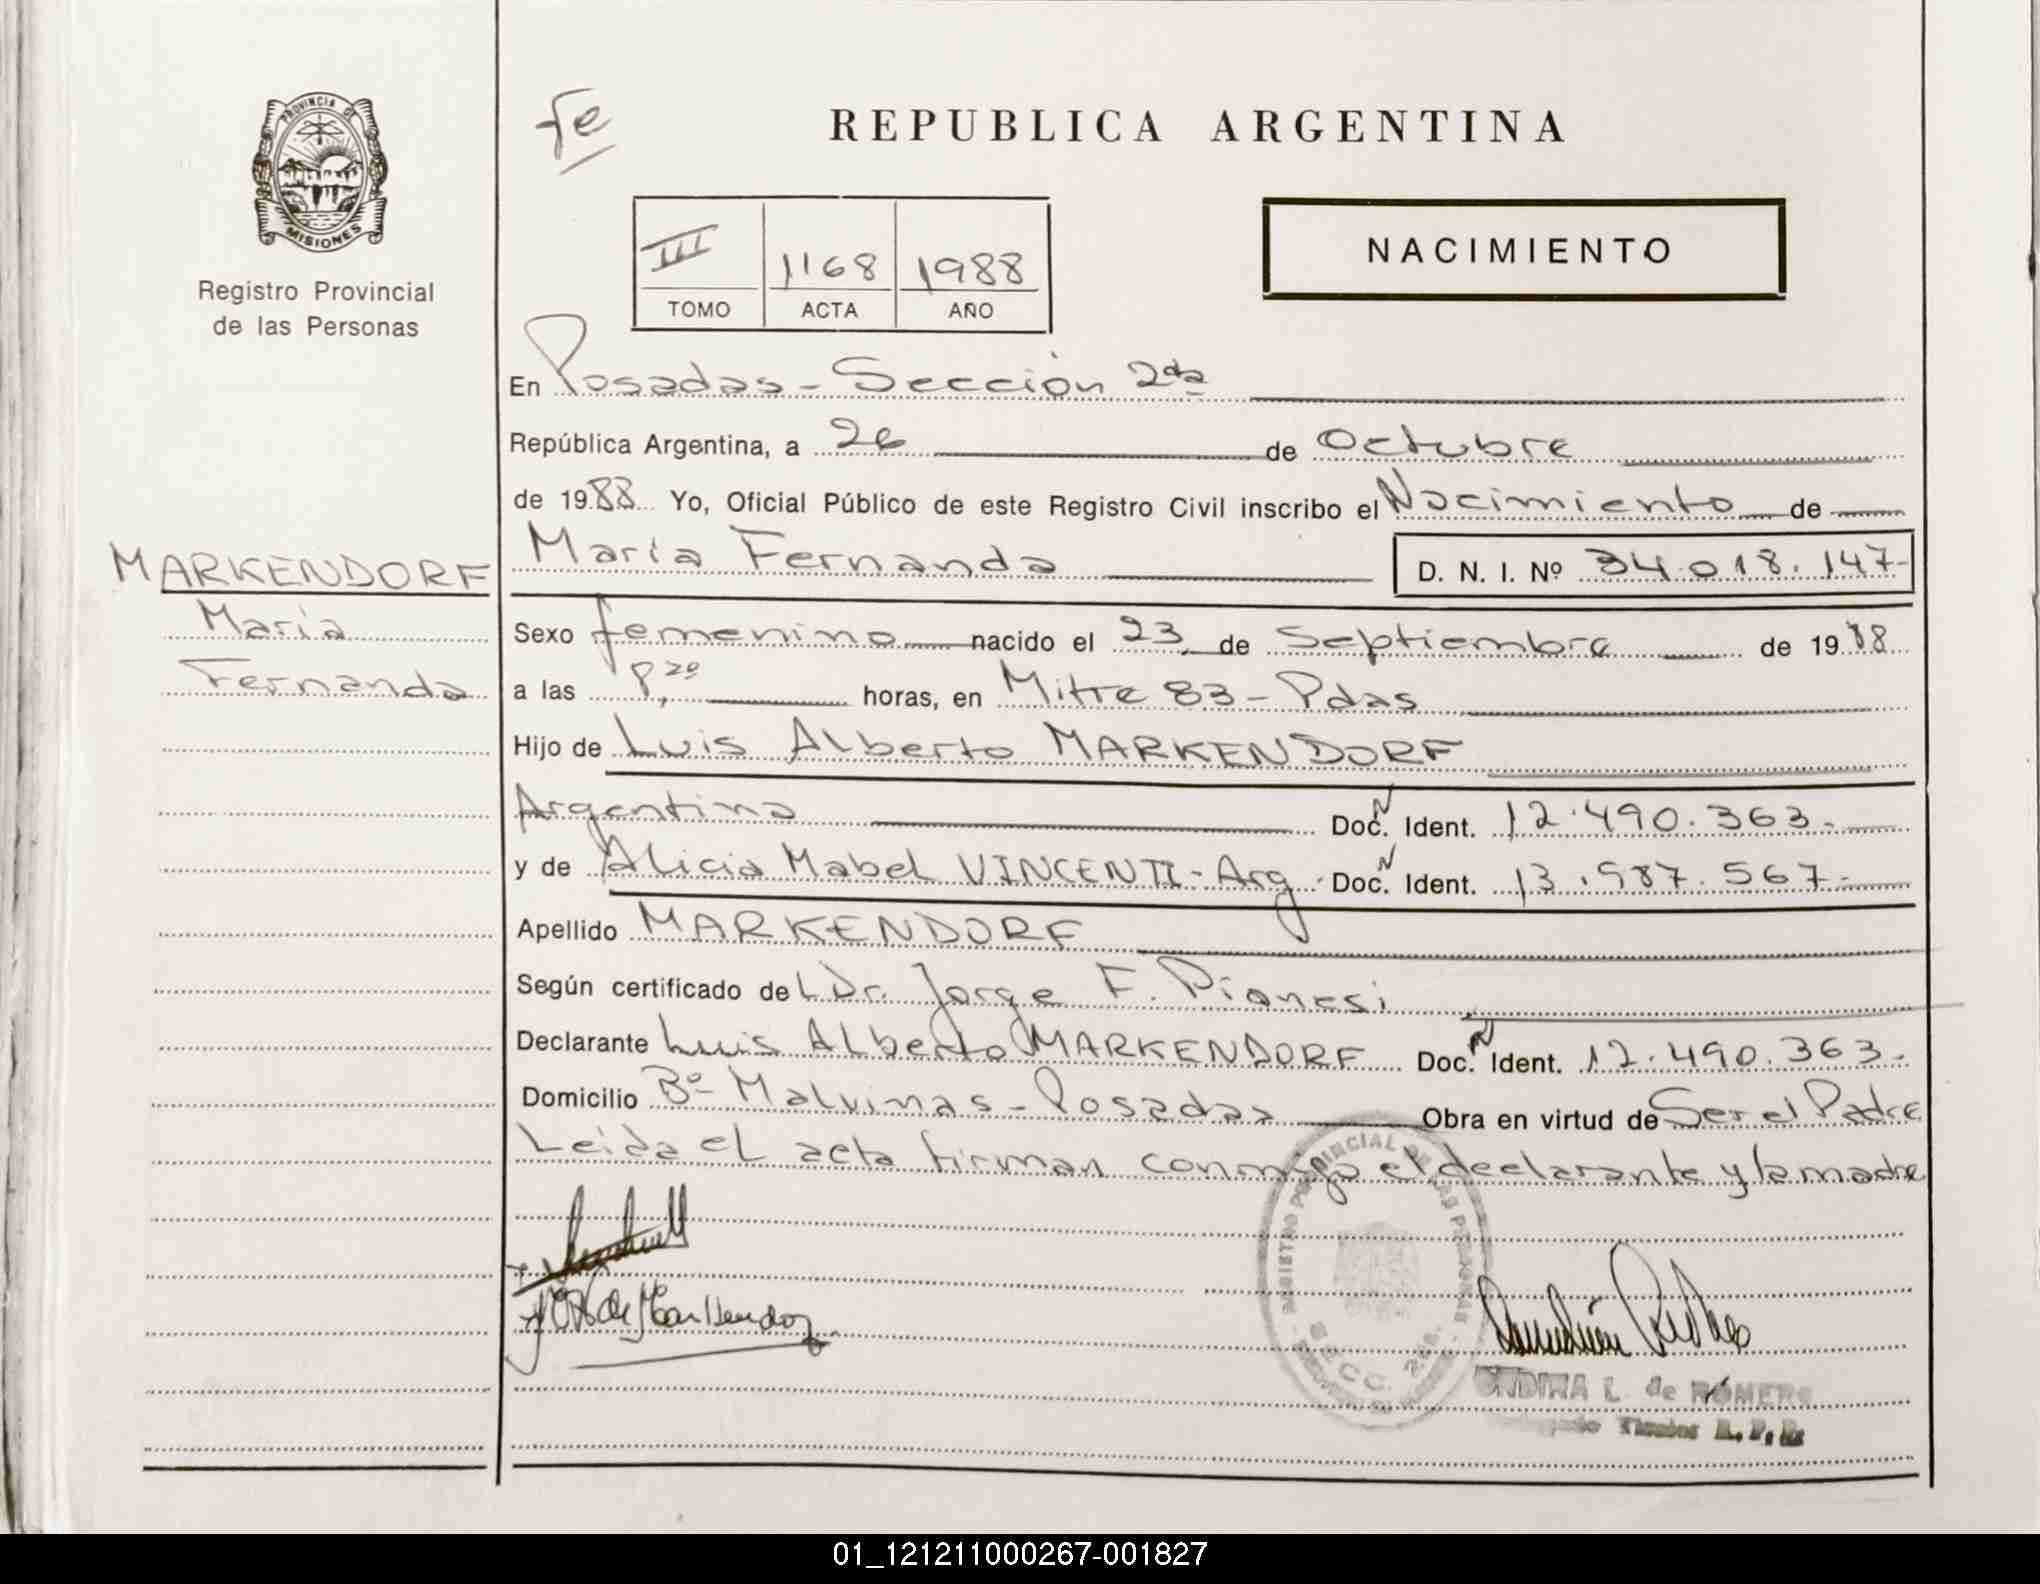 PROVINCIA DE
MISIONES
Registro Provincial
de las Personas
MARKENDORF
María
Fernanda
Fe
REPUBLICA ARGENTINA
III 1168 1988
TOMO ACTA AÑO
NACIMIENTO
En Posadas - Sección 2da
República Argentina, a 26 de Octubre
de 1988 Yo, Oficial Público de este Registro Civil inscribo el Nacimiento de
María Fernanda D. N. I. Nº 34.018.147-
Sexo femenino nacido el 23 de Septiembre de 1988
a las 8,20 horas, en Mitre 83 - Pdas
Hijo de Luis Alberto MARKENDORF
Argentino Doc. Ident. 12.490.363-
y de Alicia Mabel VINCENTI - Arg. Doc. Ident. 13.987.567-
Apellido MARKENDORF
Según certificado del Dr. Jorge F. Pianesi
Declarante Luis Alberto MARKENDORF Doc. Ident. 12.490.363-
Domicilio Bº Malvinas - Posadas Obra en virtud de Ser el Padre
Leída el acta firman conmigo el declarante y la madre
REGISTRO PROVINCIAL DE LAS PERSONAS
SECC. 2da.
ONDINA L. de ROMERO
Delegado Técnico R. P. P.
01_121211000267-001827